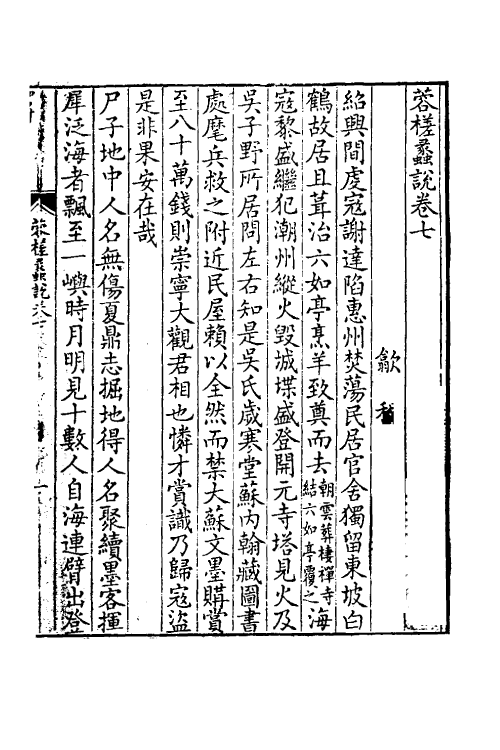 蓉槎蠡說卷七
歙
紹興間虔寇謝達陷惠州焚蕩民居官舍獨留東坡白
鶴故居且葺治六如亭烹羊致奠而去朝雲葬棲禪寺結六如亭覆之海
寇黎盛繼犯潮州縱火毀城堞盛登開元寺塔見火及
吳子野所居問左右知是吳氏歲寒堂蘇內翰藏圖書
處麾兵救之附近民屋賴以全然而禁大蘇文墨購賞
至八十萬錢則崇寧大觀君相也憐才賞識乃歸寇盜
是非果安在哉
尸子地中人名無傷夏鼎志掘地得人名聚續墨客揮
犀泛海者飄至一嶼時月明見十數人自海連臂出登
蓉槎蠡說卷七